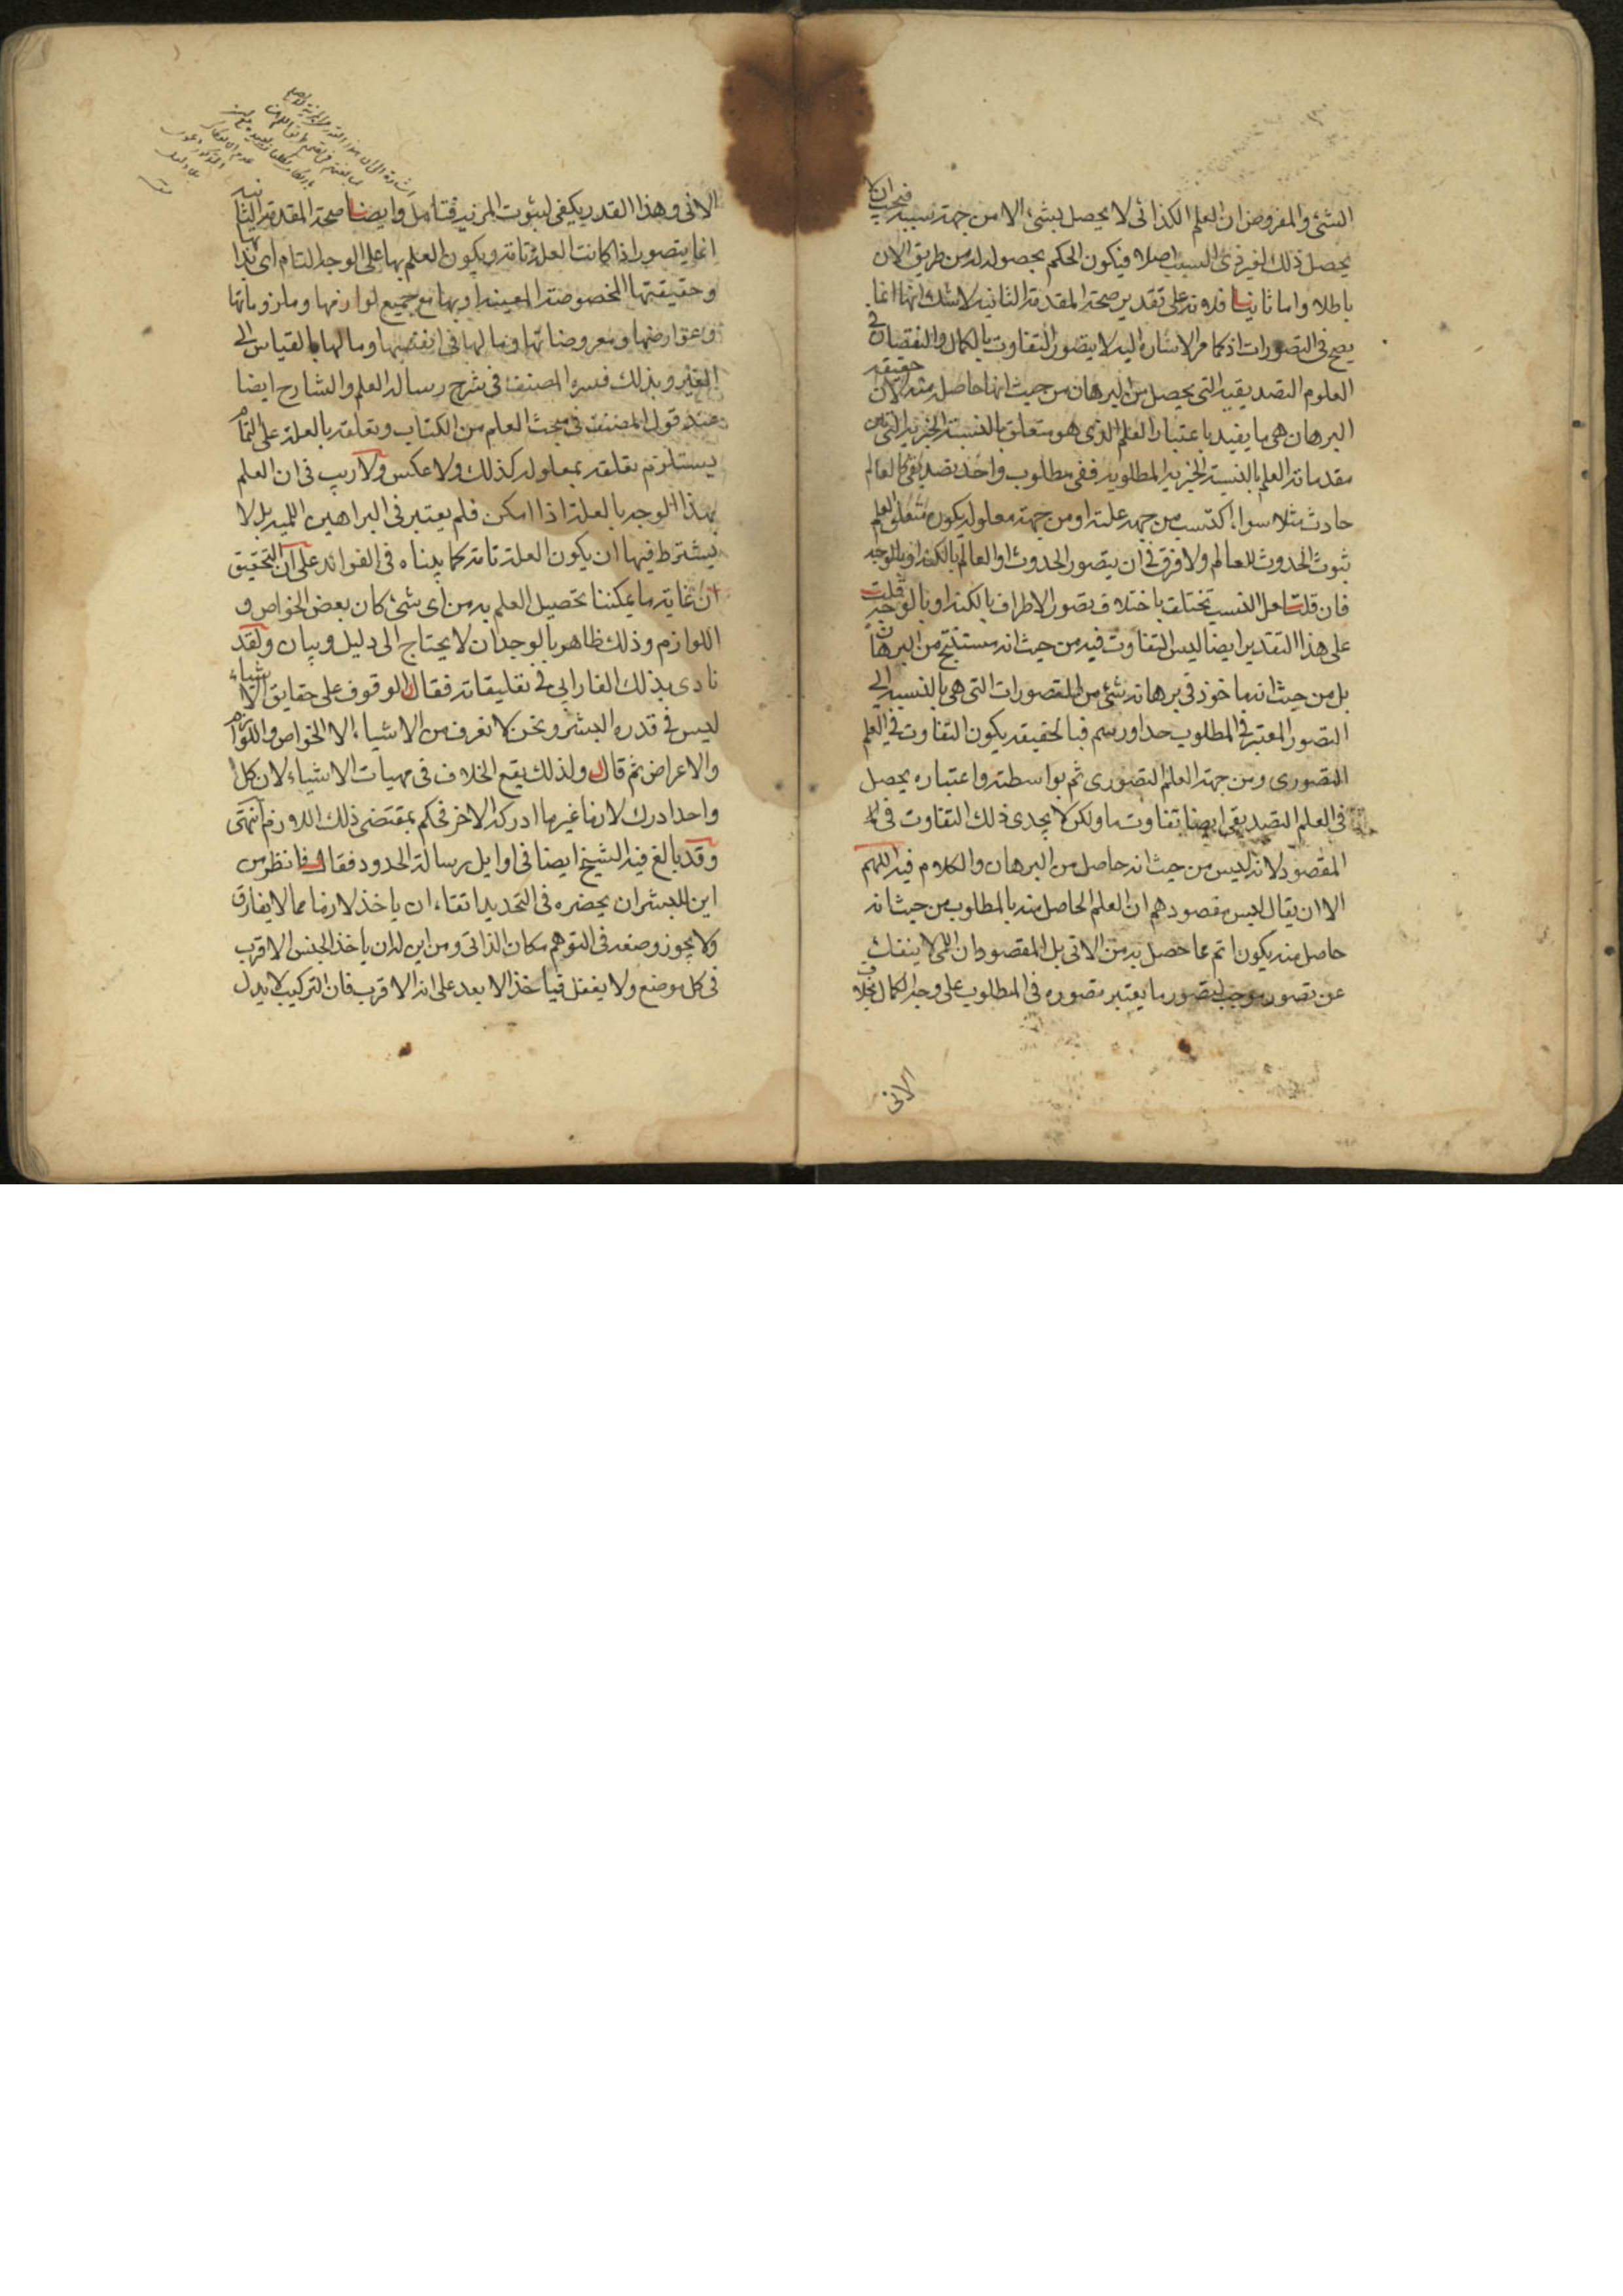 الشئ والمفروض ان العلم الكذائى لا يحصل بشئ الا من جهة سببه فيجب ان لا
يحصل ذلك لغير ذى السبب اصلا فيكون الحكم بحصوله له من طريق الان
باطلا واما ثانيا فلانه على تقدير صحة المقدمة الثانية لا شك انها انما
يصح فى التصورات اذ كما مر الاشارة اليه لا يتصور التفاوت بالكمال والنقصان فى
العلوم التصديقية التى يحصل من البرهان من حيث انها حاصل منه لان حقيقة
البرهان هى ما يفيد باعتبار العلم الذى هو متعلق بالنسبة الخبرية التى من
مقدماته العلم بالنسبة الخبرية المطلوبة ففى مطلوب واحد تصديقى كالعالم
حادث مثلا سواء اكتسب من جهة علته او من جهة معلوله يكون متعلق العلم
ثبوت الحدوث للعالم ولا فرق فى ان يتصور الحدوث او العالم بالكنه او بالوجه
فان قلت هل النسب تختلف باختلاف تصور الاطراف بالكنه او بالوجه قلت
على هذا التقدير ايضا ليس التفاوت فيه من حيث انه مستنتج من البرهان
بل من حيث انه ماخوذ فى برهانه شئ من التصورات التى هى بالنسبة الى
التصور المعتبر فى المطلوب حد او رسم فبالحقيقة يكون التفاوت فى العلم
التصورى ومن جهة العلم التصورى ثم بواسطته واعتباره يحصل
فى العلم التصديقى ايضا تفاوت ما ولكن لا يجدى ذلك التفاوت فى
المقصود لانه ليس من حيث انه حاصل من البرهان والكلام فيه اللهم
الا ان يقال ليس مقصودهم ان العلم الحاصل منه بالمطلوب من حيث انه
حاصل منه يكون اتم مما حصل به من الانى بل المقصود ان اللمى لا ينفك
عن تصور موجب لتصور ما يعتبر تصوره فى المطلوب على وجه الكمال بخلاف
الانى
الانى وهذا القدر يكفى لثبوت المزية فتامل وايضا صحة المقدمة الثانية
انما يتصور اذا كانت العلة تامة ويكون العلم بها على الوجه التام اى بذاتها
وحقيقتها المخصوصة المعينة او بها مع جميع لوازمها وملزوماتها
وعوارضها ومعروضاتها وما لها فى انفسها وما لها بالقياس الى
الغير وبذلك فسره المصنف فى شرح رسالة العلم والشارح ايضا
عند قول المصنف فى مبحث العلم من الكتاب وتعلقه بالعلة على التمام
يستلزم تعلقه بمعلوله كذلك ولا عكس ولا ريب فى ان العلم
بهذا الوجه بالعلة اذا امكن فلم يعتبر فى البراهين اللمية بل لا
يشترط فيها ان يكون العلة تامة كما بيناه فى الفوائد على ان التحقيق
ان غاية ما يمكننا تحصيل العلم به من اى شئ كان بعض الخواص و
اللوازم وذلك ظاهر بالوجدان لا يحتاج الى دليل وبيان ولقد
نادى بذلك الفارابى فى تعليقاته فقال الوقوف على حقايق الاشياء
ليس فى قدرة البشر ونحن لا نعرف من الاشياء الا الخواص واللوازم
والاعراض ثم قال ولذلك يقع الخلاف فى مهيات الاشياء لان كل
واحد ادرك لازما غير ما ادركه الاخر فحكم بمقتضى ذلك اللازم انتهى
وقد بالغ فيه الشيخ ايضا فى اوايل رسالة الحدود فقال فانظر من
اين للبشر ان يحضره فى التحديد اتقاء ان ياخذ لازما مما لا يفارق
ولا يجوز وضعه فى التوهم مكان الذاتى ومن اين له ان ياخذ الجنس الاقرب
فى كل موضع ولا يغفل فياخذ الابعد على انه الاقرب فان التركيب لا يدل